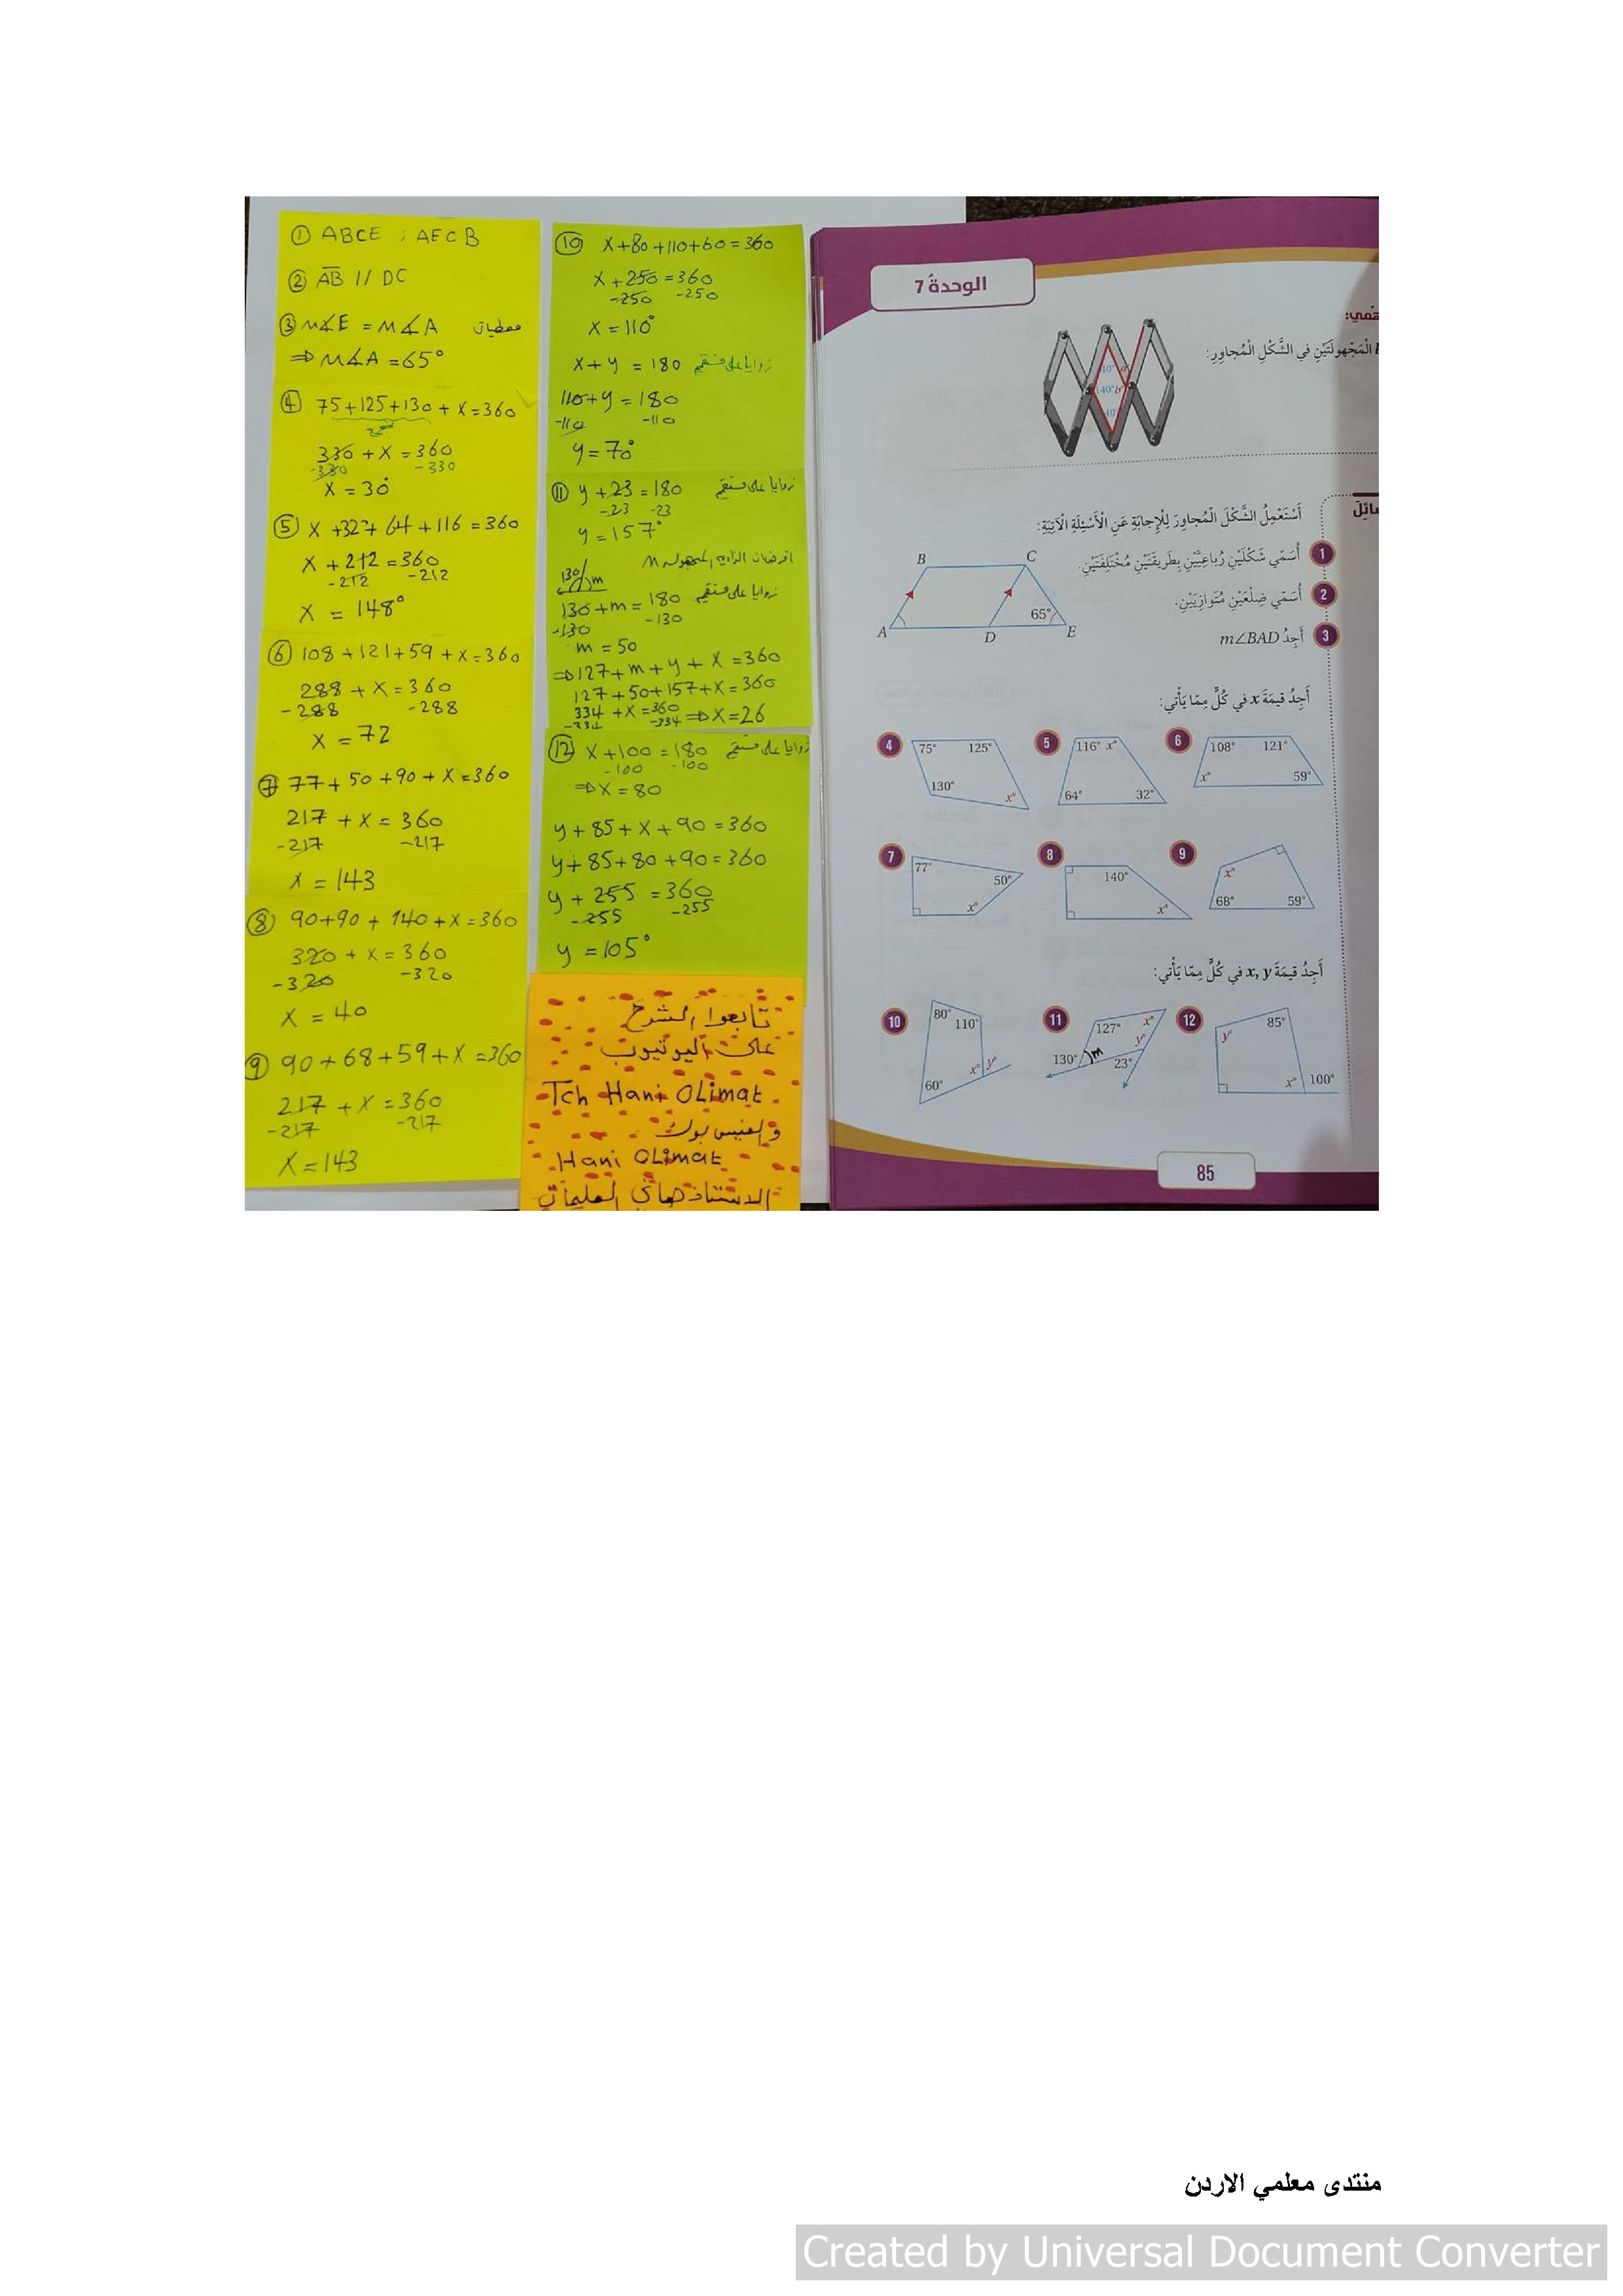 ① ABCE ; AECB
② AB // DC
③ m∡E = m∡A معطيات
⇒ m∡A = 65°
④ 75+125+130 + x = 360
330 + x = 360
-330 -330
x = 30°
⑤ x + 32 + 64 + 116 = 360
x + 212 = 360
-212 -212
x = 148°
⑥ 108 + 121 + 59 + x = 360
288 + x = 360
-288 -288
x = 72
⑦ 77 + 50 + 90 + x = 360
217 + x = 360
-217 -217
x = 143
⑧ 90+90 + 140 + x = 360
320 + x = 360
-320 -320
x = 40
⑨ 90 + 68 + 59 + x = 360
217 + x = 360
-217 -217
x = 143
⑩ x + 80 + 110 + 60 = 360
x + 250 = 360
-250 -250
x = 110°
x + y = 180 زوايا على مستقيم
110 + y = 180
-110 -110
y = 70°
⑪ y + 23 = 180 زوايا على مستقيم
-23 -23
y = 157°
الزاوية المجهولة m
130 m
130 + m = 180 زوايا على مستقيم
-130 -130
m = 50
⇒ 127 + m + y + x = 360
127 + 50 + 157 + x = 360
334 + x = 360
-334 -334 ⇒ x = 26
⑫ x + 100 = 180 زوايا على مستقيم
-100 -100
⇒ x = 80
y + 85 + x + 90 = 360
y + 85 + 80 + 90 = 360
y + 255 = 360
-255 -255
y = 105°
تابعوا الشرح
على اليوتيوب
Tch Hani OLimat
والفيس بوك
Hani OLimat
الاستاذ هاني العليمات
الوحدةُ 7
الْمَجْهولَتَيْنِ في الشَّكْلِ الْمُجاوِرِ:
140° b°
أَسْتَعْمِلُ الشَّكْلَ الْمُجاوِرَ لِلْإِجابَةِ عَنِ الْأَسْئِلَةِ الْآتِيَةِ:
1 أُسَمّي شَكْلَيْنِ رُباعِيَّيْنِ بِطَريقَتَيْنِ مُخْتَلِفَتَيْنِ.
2 أُسَمّي ضِلْعَيْنِ مُتَوازِيَيْنِ.
3 أَجِدُ m∠BAD
B C
65°
A D E
أَجِدُ قيمَةَ x في كُلٍّ مِمّا يَأْتي:
4 75° 125° 130° x°
5 116° x° 64° 32°
6 108° 121° x° 59°
7 77° 50° x°
8 140° x°
9 x° 68° 59°
أَجِدُ قيمَةَ x, y في كُلٍّ مِمّا يَأْتي:
10 80° 110° x° y° 60°
11 127° x° y° 130° m 23°
12 85° y° x° 100°
85
منتدى معلمي الاردن
Created by Universal Document Converter